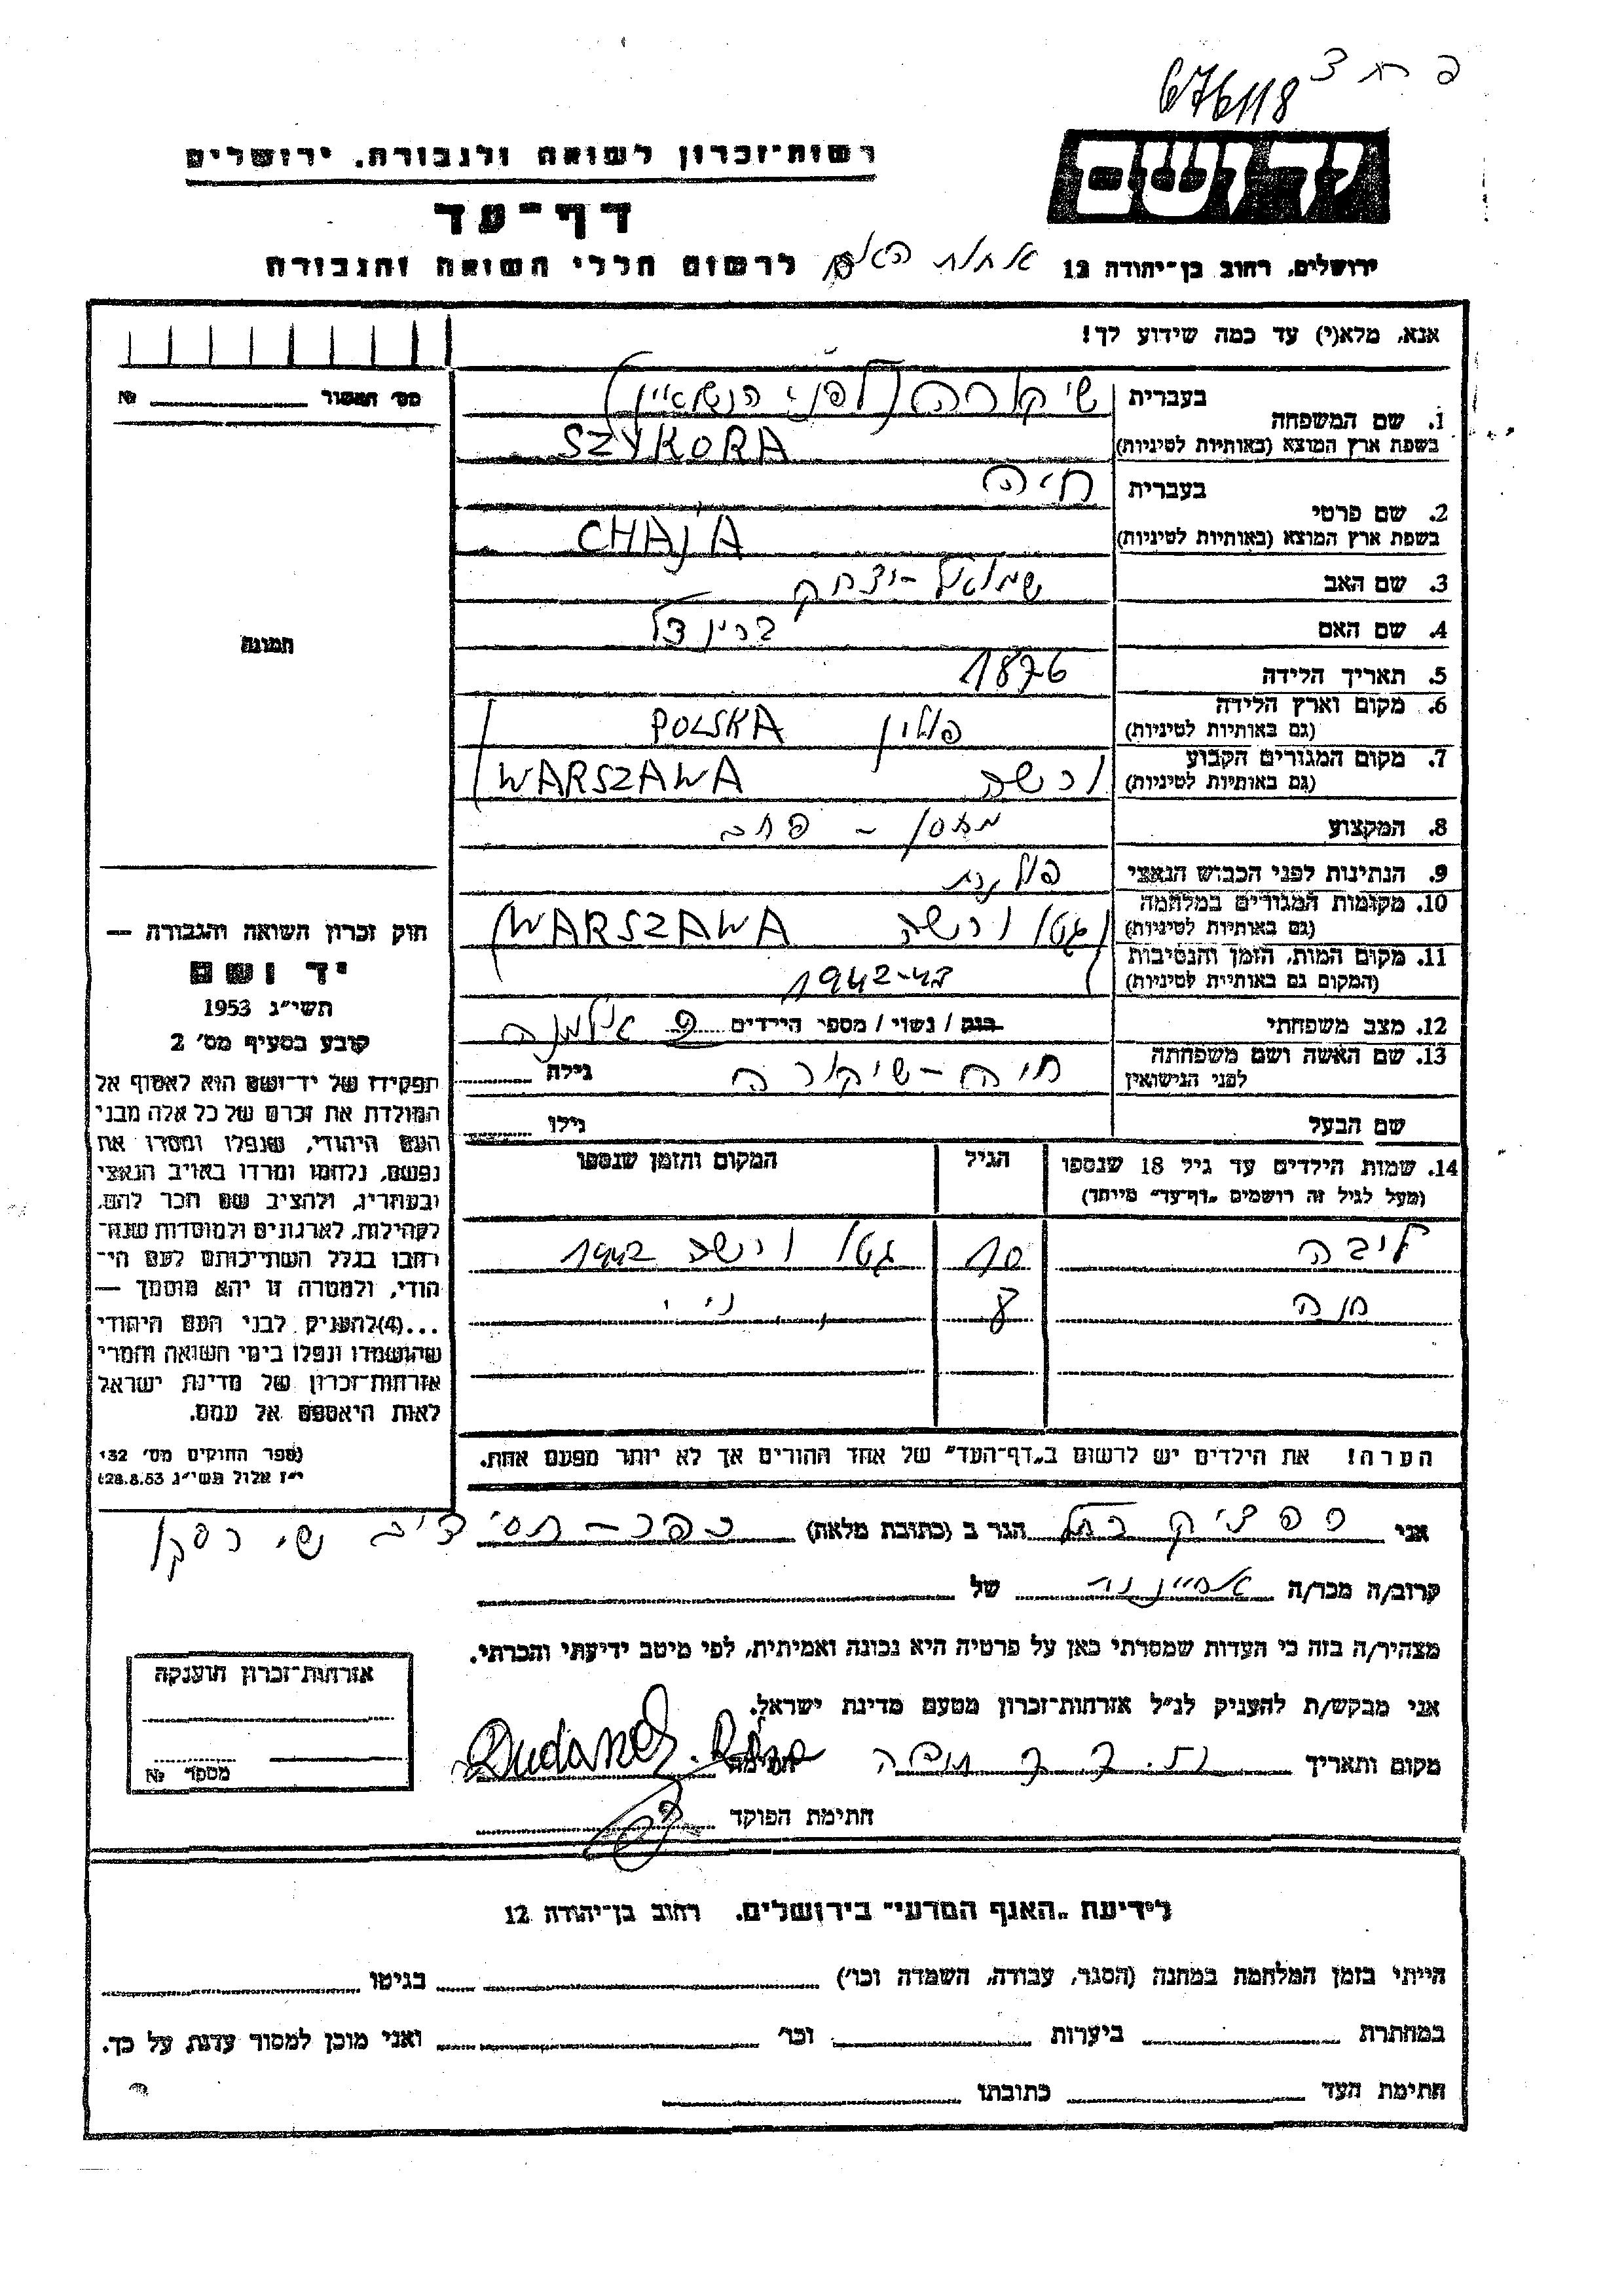 676118
יד ושם
רשות־זכרון לשואה ולגבורה, ירושלים
דף־עד
ירושלים, רחוב בן־יהודה 12
לרשום חללי השואה והגבורה
אנא, מלא(י) עד כמה שידוע לך!
מס' תמשור № 
1. שם המשפחה
בעברית שיקורה (לפני הנשואין)
בשפת ארץ המוצא (באותיות לטיניות) SZYKORA
2. שם פרטי
בעברית חיה
בשפת ארץ המוצא (באותיות לטיניות) CHAJA
3. שם האב שמואל-יצחק
4. שם האם בריינדל
5. תאריך הלידה 1876
6. מקום וארץ הלידה (גם באותיות לטיניות) פולין POLSKA
7. מקום המגורים הקבוע (גם באותיות לטיניות) ורשה WARSZAWA
8. המקצוע
9. הנתינות לפני הכבוש הנאצי פולנית
10. מקומות המגורים במלחמה (גם באותיות לטיניות) גטו ורשה WARSZAWA
11. מקום המות, הזמן והנסיבות (המקום גם באותיות לטיניות) 1942-43
12. מצב משפחתי רווק / נשוי / מספר הילדים אלמנה
13. שם האשה ושם משפחתה לפני הנישואין חיה-שיקורה גילה
שם הבעל גילו
14. שמות הילדים עד גיל 18 שנספו (מעל לגיל זה רושמים „דף־עד" מייחד) הגיל המקום והזמן שנספו
ליבה 10 גטו ורשה 1942
חנה 8
הערה! את הילדים יש לרשום ב„דף־העד" של אחד ההורים אך לא יותר מפעם אחת.
תמונה
חוק זכרון השואה והגבורה —
יד ושם
תשי"ג 1953
קובע בסעיף מס' 2
תפקידו של יד־ושם הוא לאסוף אל
המולדת את זכרם של כל אלה מבני
העם היהודי, שנפלו ומסרו את
נפשם, נלחמו ומרדו באויב הנאצי
ובעוזריו, ולהציב שם וזכר להם,
לקהילות, לארגונים ולמוסדות שנח־
רבו בגלל השתייכותם לעם הי־
הודי, ולמטרה זו יהא מוסמך —
...(4) להעניק לבני העם היהודי
שהושמדו ונפלו בימי השואה והמרי
אזרחות־זכרון של מדינת ישראל
לאות היאספם אל עמם.
(ספר החוקים מס' 132
י"ז אלול תשי"ג 28.8.53)
אני רפציק רחל הגר ב (כתובת מלאה) כפר-חסידים
קרוב/ה מכר/ה של
מצהיר/ה בזה כי העדות שמסרתי כאן על פרטיה היא נכונה ואמיתית, לפי מיטב ידיעתי והכרתי.
אני מבקש/ת להעניק לנ"ל אזרחות־זכרון מטעם מדינת ישראל.
מקום ותאריך חתימה
חתימת הפוקד
אזרחות־זכרון הוענקה
מספר №
לידיעת „האגף המדעי" בירושלים, רחוב בן־יהודה 12
הייתי בזמן המלחמה במחנה (הסגר, עבודה, השמדה וכו') בגיטו
במחתרת ביערות וכו' ואני מוכן למסור עדות על כך.
חתימת העד כתובתו